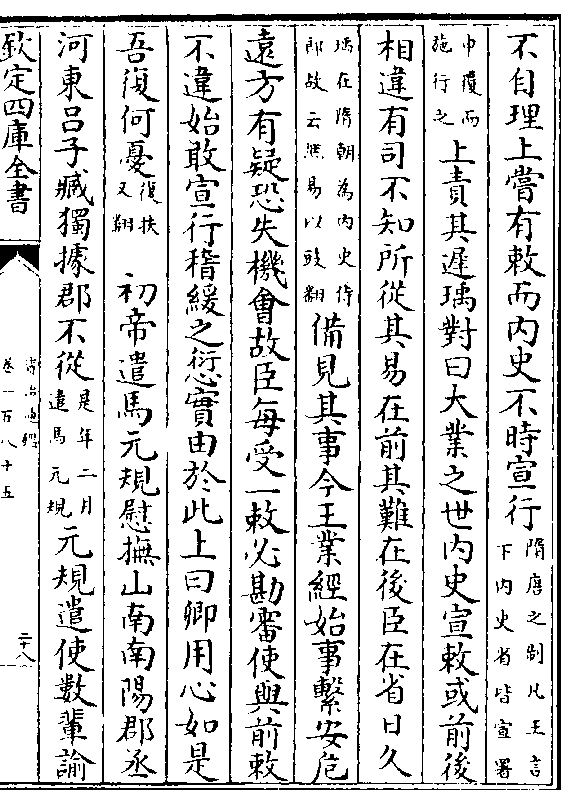 不自理上嘗有敕而内史不時宣行隋唐之制凡王言下内史省皆宣署
申覆而施行之上責其遲瑀對曰大業之世内史宣敕或前後
相違有司不知所從其易在前其難在後臣在省日久
瑀在隋朝為内史侍郎故云然易以豉翻備見其事今王業經始事繫安危
遠方有疑恐失機會故臣每受一敕必勘審使與前敕
不違始敢宣行稽緩之愆實由於此上曰卿用心如是
吾復何憂復扶又翻　初帝遣馬元規慰撫山南南陽郡丞
河東吕子臧獨據郡不從是年二月遣馬元規元規遣使數輩諭
欽定四庫全書
資治通鑑
卷一百八十五
二十八